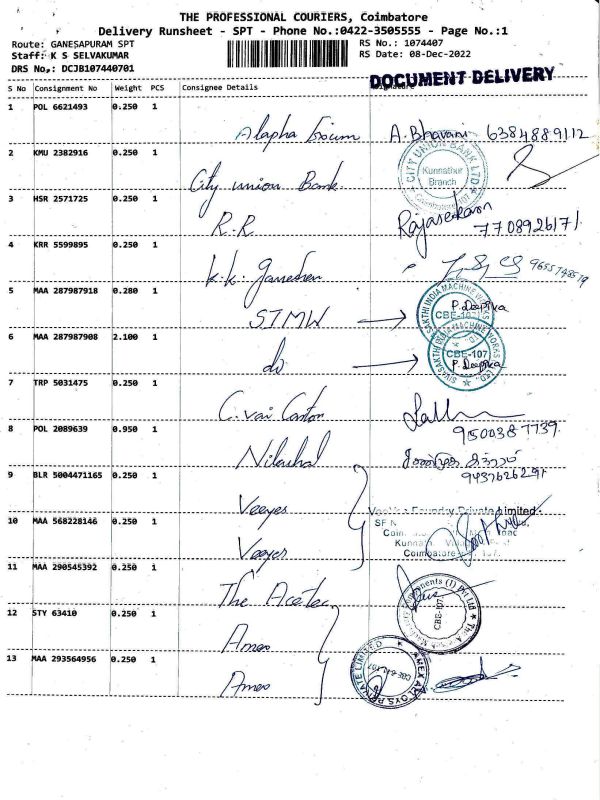 THE PROFESSIONAL COURIERS, Coimbatore
Delivery Runsheet - SPT - Phone No.:0422-3505555 - Page No.:1
Route: GANESAPURAM SPT RS No.: 1074407
Staff: K S SELVAKUMAR RS Date: 08-Dec-2022
DRS No,: DCJB107440701
DOCUMENT DELIVERY
S No Consignment No Weight PCS Consignee Details
1 POL 6621493 0.250 1
A. Bhavani 6384889112
2 KMU 2382916 0.250 1
City union Bank
CITY UNION BANK LTD
Kunnathur
Branch
3 HSR 2571725 0.250 1
R.R Rajasekaran
7708926171
4 KRR 5599895 0.250 1
K.K. Ganeshen
5 MAA 287987918 0.280 1
STMW
SIVA SAKTHI INDIA MACHINE WORKS
CBE-107
P. Deepika
6 MAA 287987908 2.100 1
do
CBE-107
P. Deepika
7 TRP 5031475 0.250 1
8 POL 2089639 0.950 1
9 BLR 5004471165 0.250 1
Veeyes
Foundry Private Limited
10 MAA 568228146 0.250 1
Veeyes
Coimbatore
11 MAA 290545392 0.250 1
The Acetec
CBE-107
12 STY 63410 0.250 1
Amex
13 MAA 293564956 0.250 1
Amex